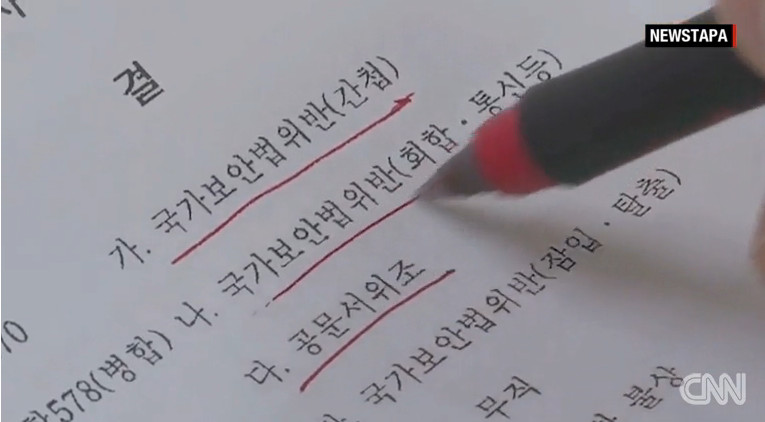 NEWSTAPA
결
가. 국가보안법위반(간첩)
나. 국가보안법위반(회합·통신등)
다. 공문서위조
국가보안법위반(잠입·탈출)
578(병합)
무직
불상
CNN